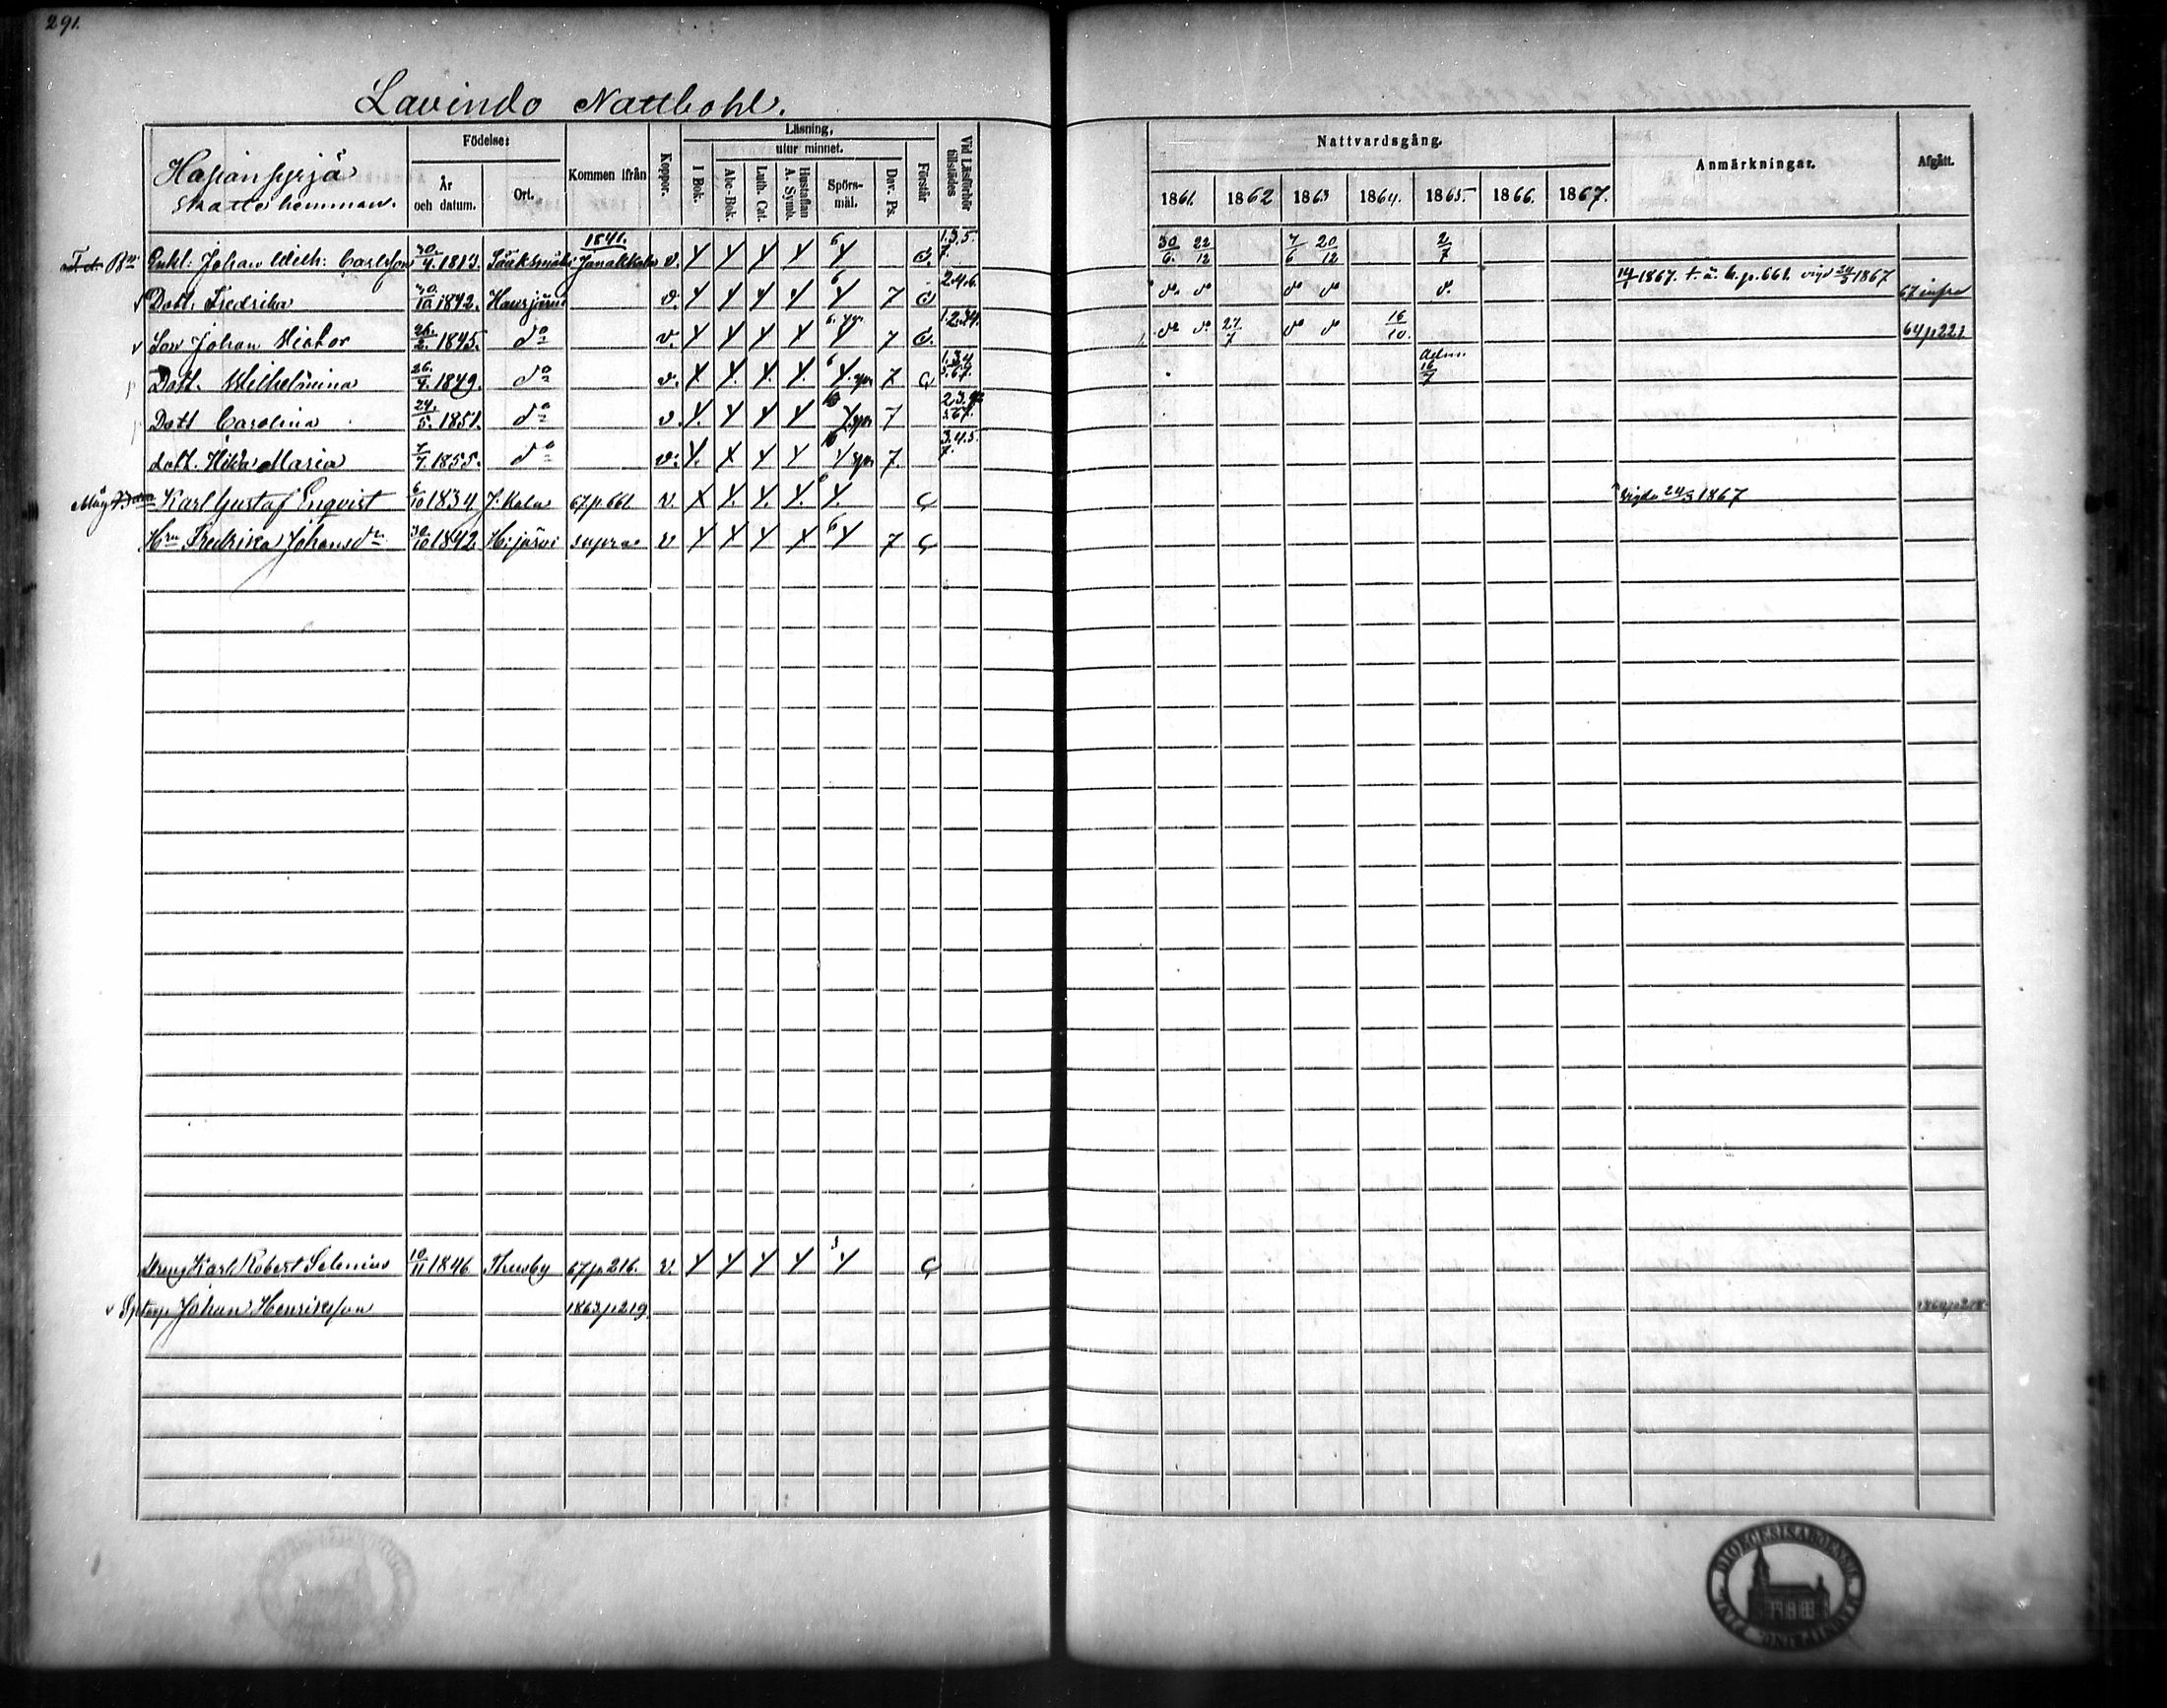 291.
Lavindo Nattbohl.
Skattehemman.
Födelse:
År och datum.
Ort.
Kommen ifrån
Koppor.
Läsning,
utur minnet.
I Bok.
Abc-Bok.
Luth. Cat.
Hustaflan A. Symb.
Spörs-mål.
Dav. Ps.
Förstår
Vid Läsförhör tillstädes
Nattvardsgång.
1861. 1862 1863 1864. 1865. 1866. 1867.
Anmärkningar.
Afgått.
Enkl. Johan Wilh: Carlsson 30/4. 1813. Sääksmäki 1841. Janakkala v. 6 1.3.5.7. 30/6. 22/12 7/6 20/12 2/7
v Dott. Fredrika 30/10 1842. Hausjärvi v. 6 7 2.4.6. do do do do do 1867. t. ä. b. p. 661. vigd 24/3 1867 67 infra
v Son Johan Victor 26/2. 1845. do v. 7 1.2.3.4. do do 27/7 do do 16/10. 64 p 221.
Dott. Wilhelmina 26/4. 1849. do v. 7 1.3.4. 5.6.7. Adm. 16/7
Dott Carolina 24/5. 1851. do v. 7
dott. Hilda Maria 7/7. 1855. do v. 7. 3.4.5. 7.
Måg Karl Gustaf Enqvist 6/10 1834 J:kala 67 p. 661 v. vigda 24/3 1867
Hru Fredrika Johansdr 30/10 1842 H:järvi supra v 6 7
Dreng Karl Robert Selenius 10/11 1846 Thusby 67 p 216. v.
v Johan Henriksson 1863 p 219.
DIOECESIS ABOENSIS